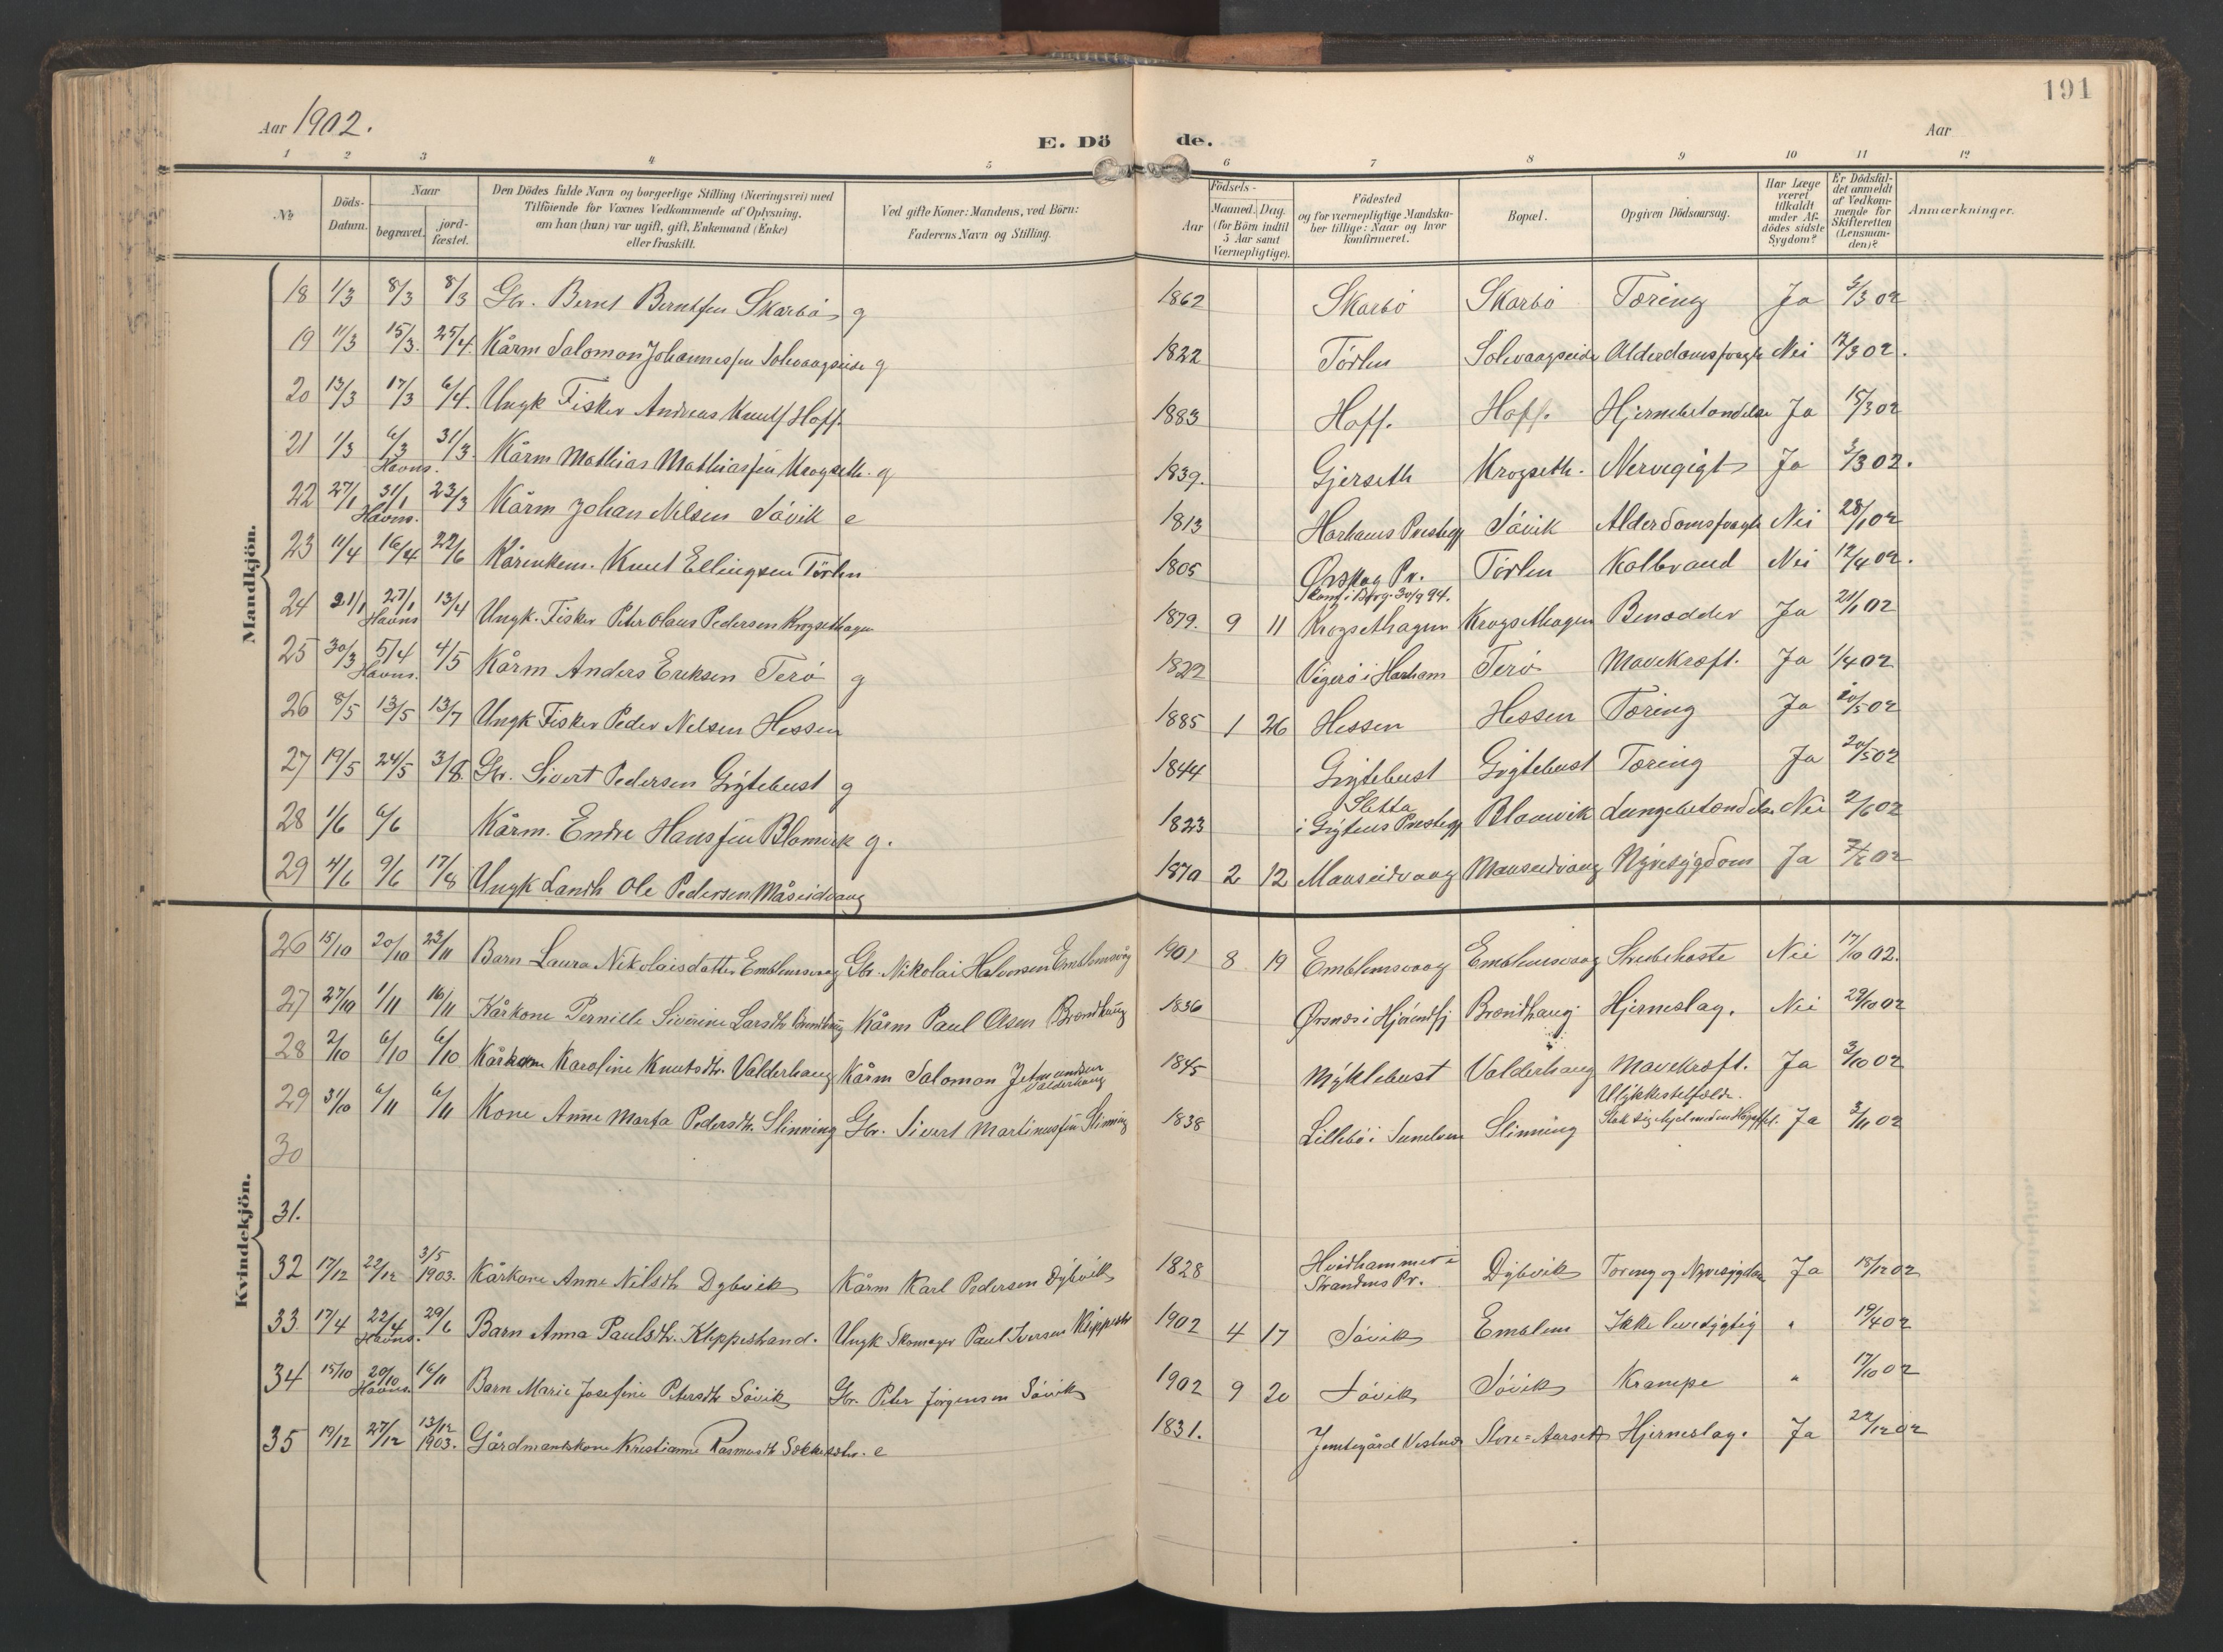 191
Aar 1902.
E. Döde.
Aar
1 2 3 4 5 6 7 8 9 10 11 12
No
Döds-Datum.
Naar
begravet.
jord-fæstet.
Den Dödes fulde Navn og borgerlige Stilling (Næringsvei) med
Tilföiende for Voxnes Vedkommende af Oplysning,
om han (hun) var ugift, gift, Enkemand (Enke)
eller fraskilt.
Ved gifte Koner: Mandens, ved Börn:
Faderens Navn og Stilling.
Födsels-
Aar
Maaned. Dag.
(for Börn indtil
5 Aar samt
Værnepligtige).
Födested
og for værnepligtige Mandska-
ber tillige: Naar og hvor
konfirmeret.
Bopæl.
Opgiven Dödsaarsag.
Har Læge
været
tilkaldt
under Af-
dödes sidste
Sygdom?
Er Dödsfal-
det anmeldt
af Vedkom-
mende for
Skifteretten
(Lensman-
den)?
Anmærkninger.
Mandkjön.
18 1/3 8/3 8/3 Gbr. Bernt Berntsen Skarbö g 1862 Skarbö Skarbö Tæring Ja 3/3 02
19 11/3 15/3. 25/4. Kårm Salomon Johannessen Solevaagseide g 1822 Törlen Solevaagseide Alderdomssvagh Nei 12/3 02.
20 13/3 17/3 6/4. Ungk Fisker Andreas Knuts Hoff. 1883 Hoff. Hoff. Hjernebetændelse Ja 15/3 02
21 1/3 6/3 Havns. 31/3. Kårm Mathias Mathiassen Krogseth. g 1839. Gjerseth Krogseth. Nervegigt Ja 3/3 02.
22 27/1 31/1 Havns. 23/3 Kårm Johan Nilsen Sövik e 1813 Harhams Prestegj Sövik Alderdomssvagh Nei 28/1 02
23 11/4 16/4 22/6 Kårenkem. Knut Ellingsen Törlen 1805 Ørskog Pr. Törlen Kolbrand Nei 12/4 02.
24 21/1 27/1 Havns 13/4 Ungk. Fisker Peter Olaus Pedersen Krogsethagen 1879. 9 11 Konf. i Borg. 30/9 94. Krogsethagen Krogsethagen Benødder Ja 21/1 02
25 30/3 5/4 Havns. 4/5 Kårm Anders Eriksen Terö g 1822 Vigerö i Harham Terö Mavekræft. Ja 1/4 02
26 8/5 13/5 13/7 Ungk Fisker Peder Nilsen Hessen 1885 1 26 Hessen Hessen Tæring Ja 10/5 02
27 19/5 24/5 3/8. Gbr. Sivert Pedersen Grytebust g 1844 Grytebust Grytebust Tæring Ja 20/5 02
28 1/6 6/6 Kårm. Endre Hanssen Blomvik g. 1823 Sletta i Grytens Prestegj Blomvik Lungebetændelse. Nei 2/6 02
29 4/6 9/6 17/8 Ungk Landh Ole Pedersen Måseidvaag 1870 2 12 Mauseidvaag Mauseidvaag Nyresygdom Ja 7/6 02
Kvindekjön.
26 15/10 20/10 23/11 Barn Laura Nikolaisdatter Emblemsvaag Gbr. Nikolai Halvorsen Emblemsvåg 1901 8 19 Emblemsvaag Emblemsvaag Strubehoste Nei 17/10 02.
27 27/10 1/11 16/11 Kårkone Pernille Siverine Larsdtr Brendhaug Kårm Paul Olsen Brendhaug 1836 Ørsnes i Hjörundfj Brendhaug Hjerneslag. Nei 29/10 02
28 2/10 6/10 6/10 Kårkone Karoline Knutsdtr. Valderhaug Kårm Salomon Jetmundsen Valderhaug 1845 Myklebust Valderhaug Mavekræft. Ja 3/10 02
29 31/10 6/11 6/11 Kone Anne Marta Pedersdtr. Slinning Gbr. Sivert Martinussen Slinning 1838 Lillebö i Sunelven Slinning Ulykkestilfælde. Stak sig ihjel med en Ja 3/11 02
30
31.
32 17/12 22/12 3/5 1903. Kårkone Anne Nilsdtr Dybvik Kårm Karl Pedersen Dybvik 1828 Hvidhammer i Strandens Pr. Dybvik Tæring og Nyresygdom Ja 18/12 02
33 17/4 22/4 Havns. 29/6 Barn Anna Paulsdtr. Kleppestrand. Ungk Skomager Paul Iversen Kleppestr 1902 4 17 Sövik Emblem Ikke levedygtig " 19/4 02
34 15/10 20/10 Havns. 16/11 Barn Marie Josefine Petersdtr Sövik Gbr. Peter Jörgensen Sövik 1902 9 20 Sövik Sövik Krampe " 17/10 02
35 19/12 27/12 13/12 1903. Gårdmandskone Kristianne Rasmusdtr e 1831. Jemtegård Vestnes Store-Aarseth Hjerneslag. Ja 22/12 02